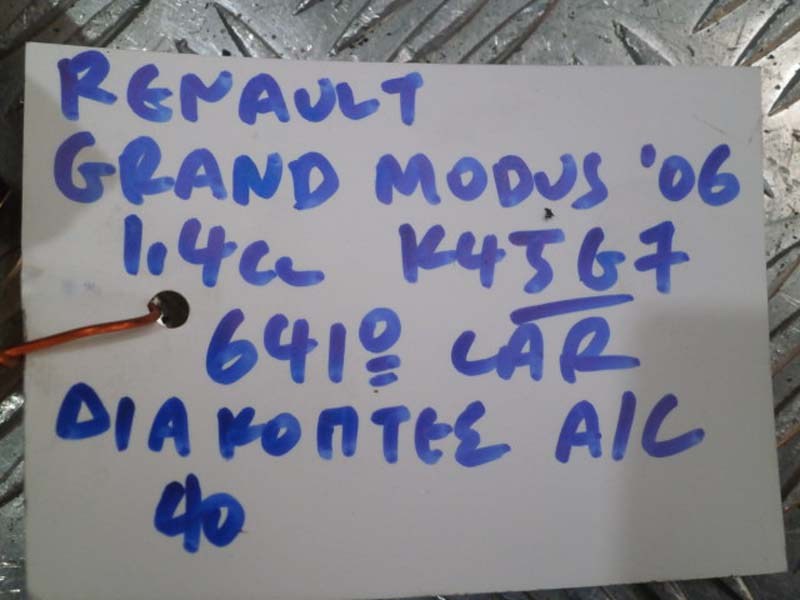 RENAULT
GRAND MODUS '06
1,4cc K4JG7
641º CAR
ΔΙΑΚΟΠΤΕΣ A/C
40